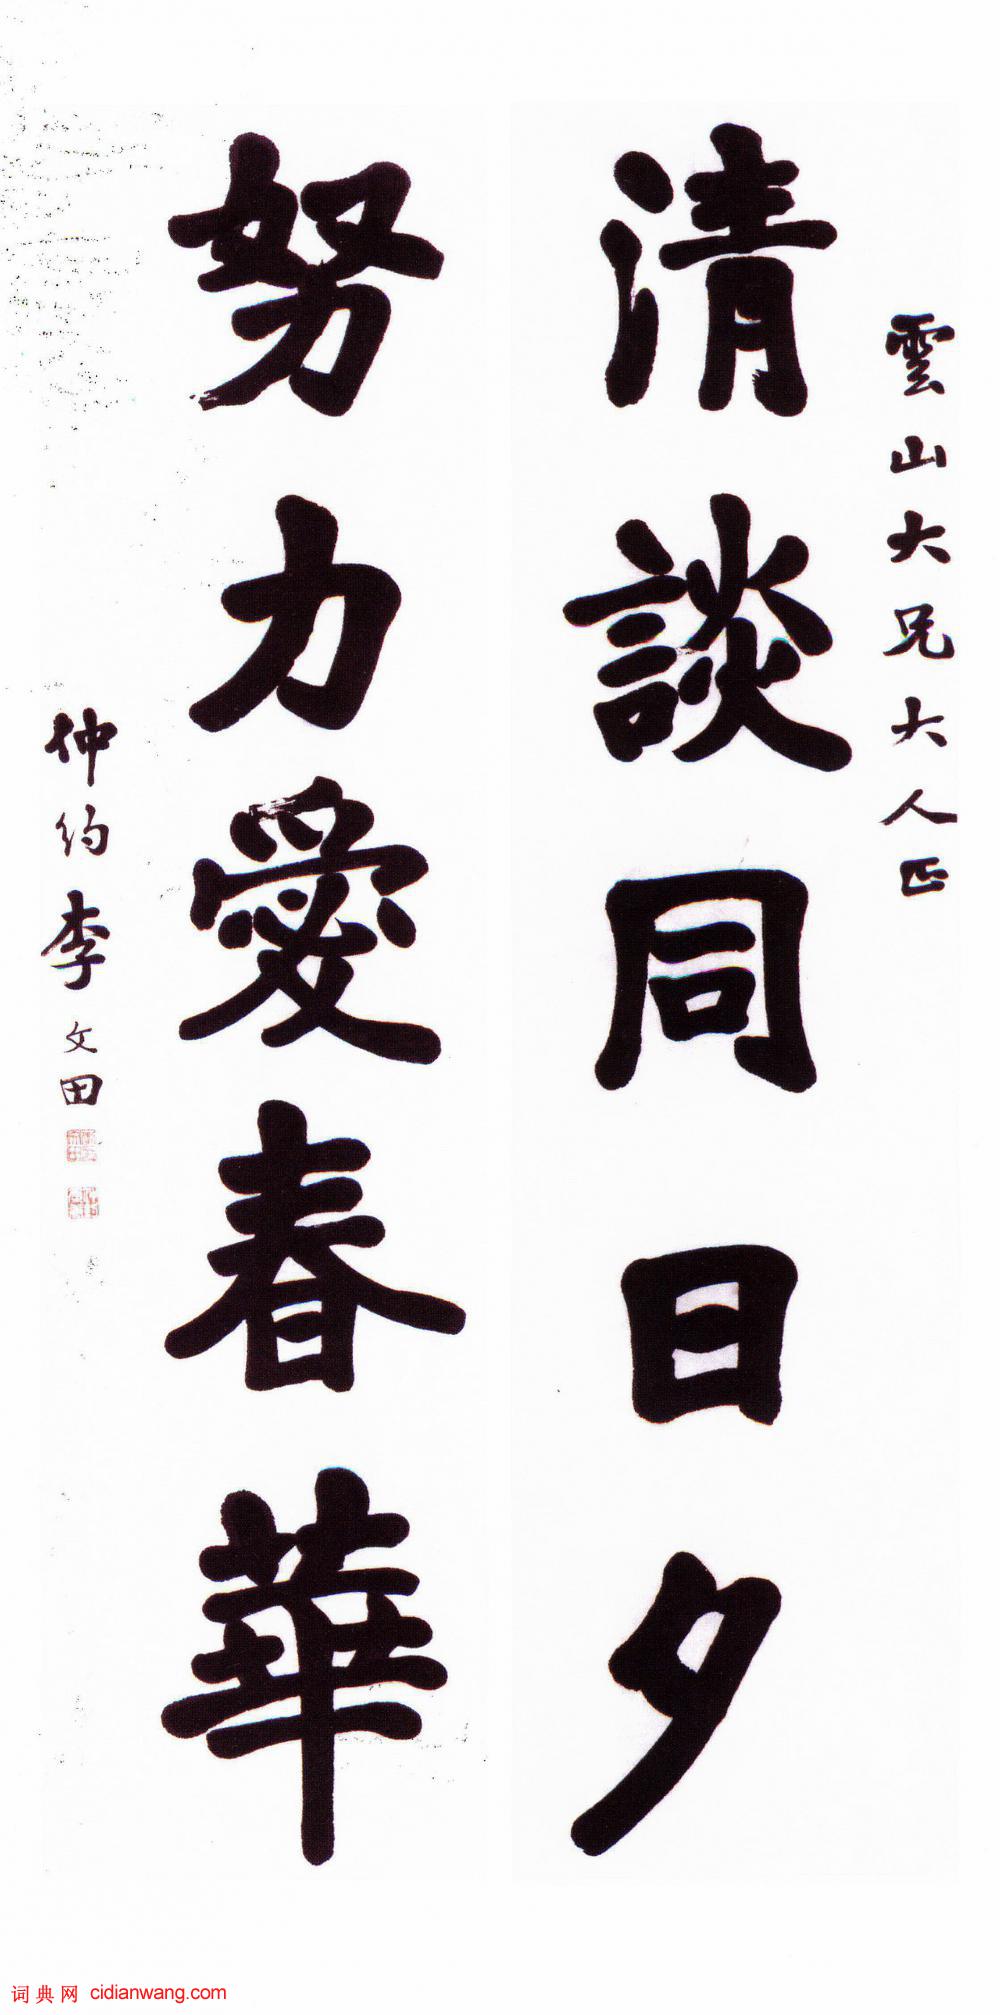 雲山大兄大人正
清談同日夕
努力愛春華
仲約李文田
词典网 cidianwang.com